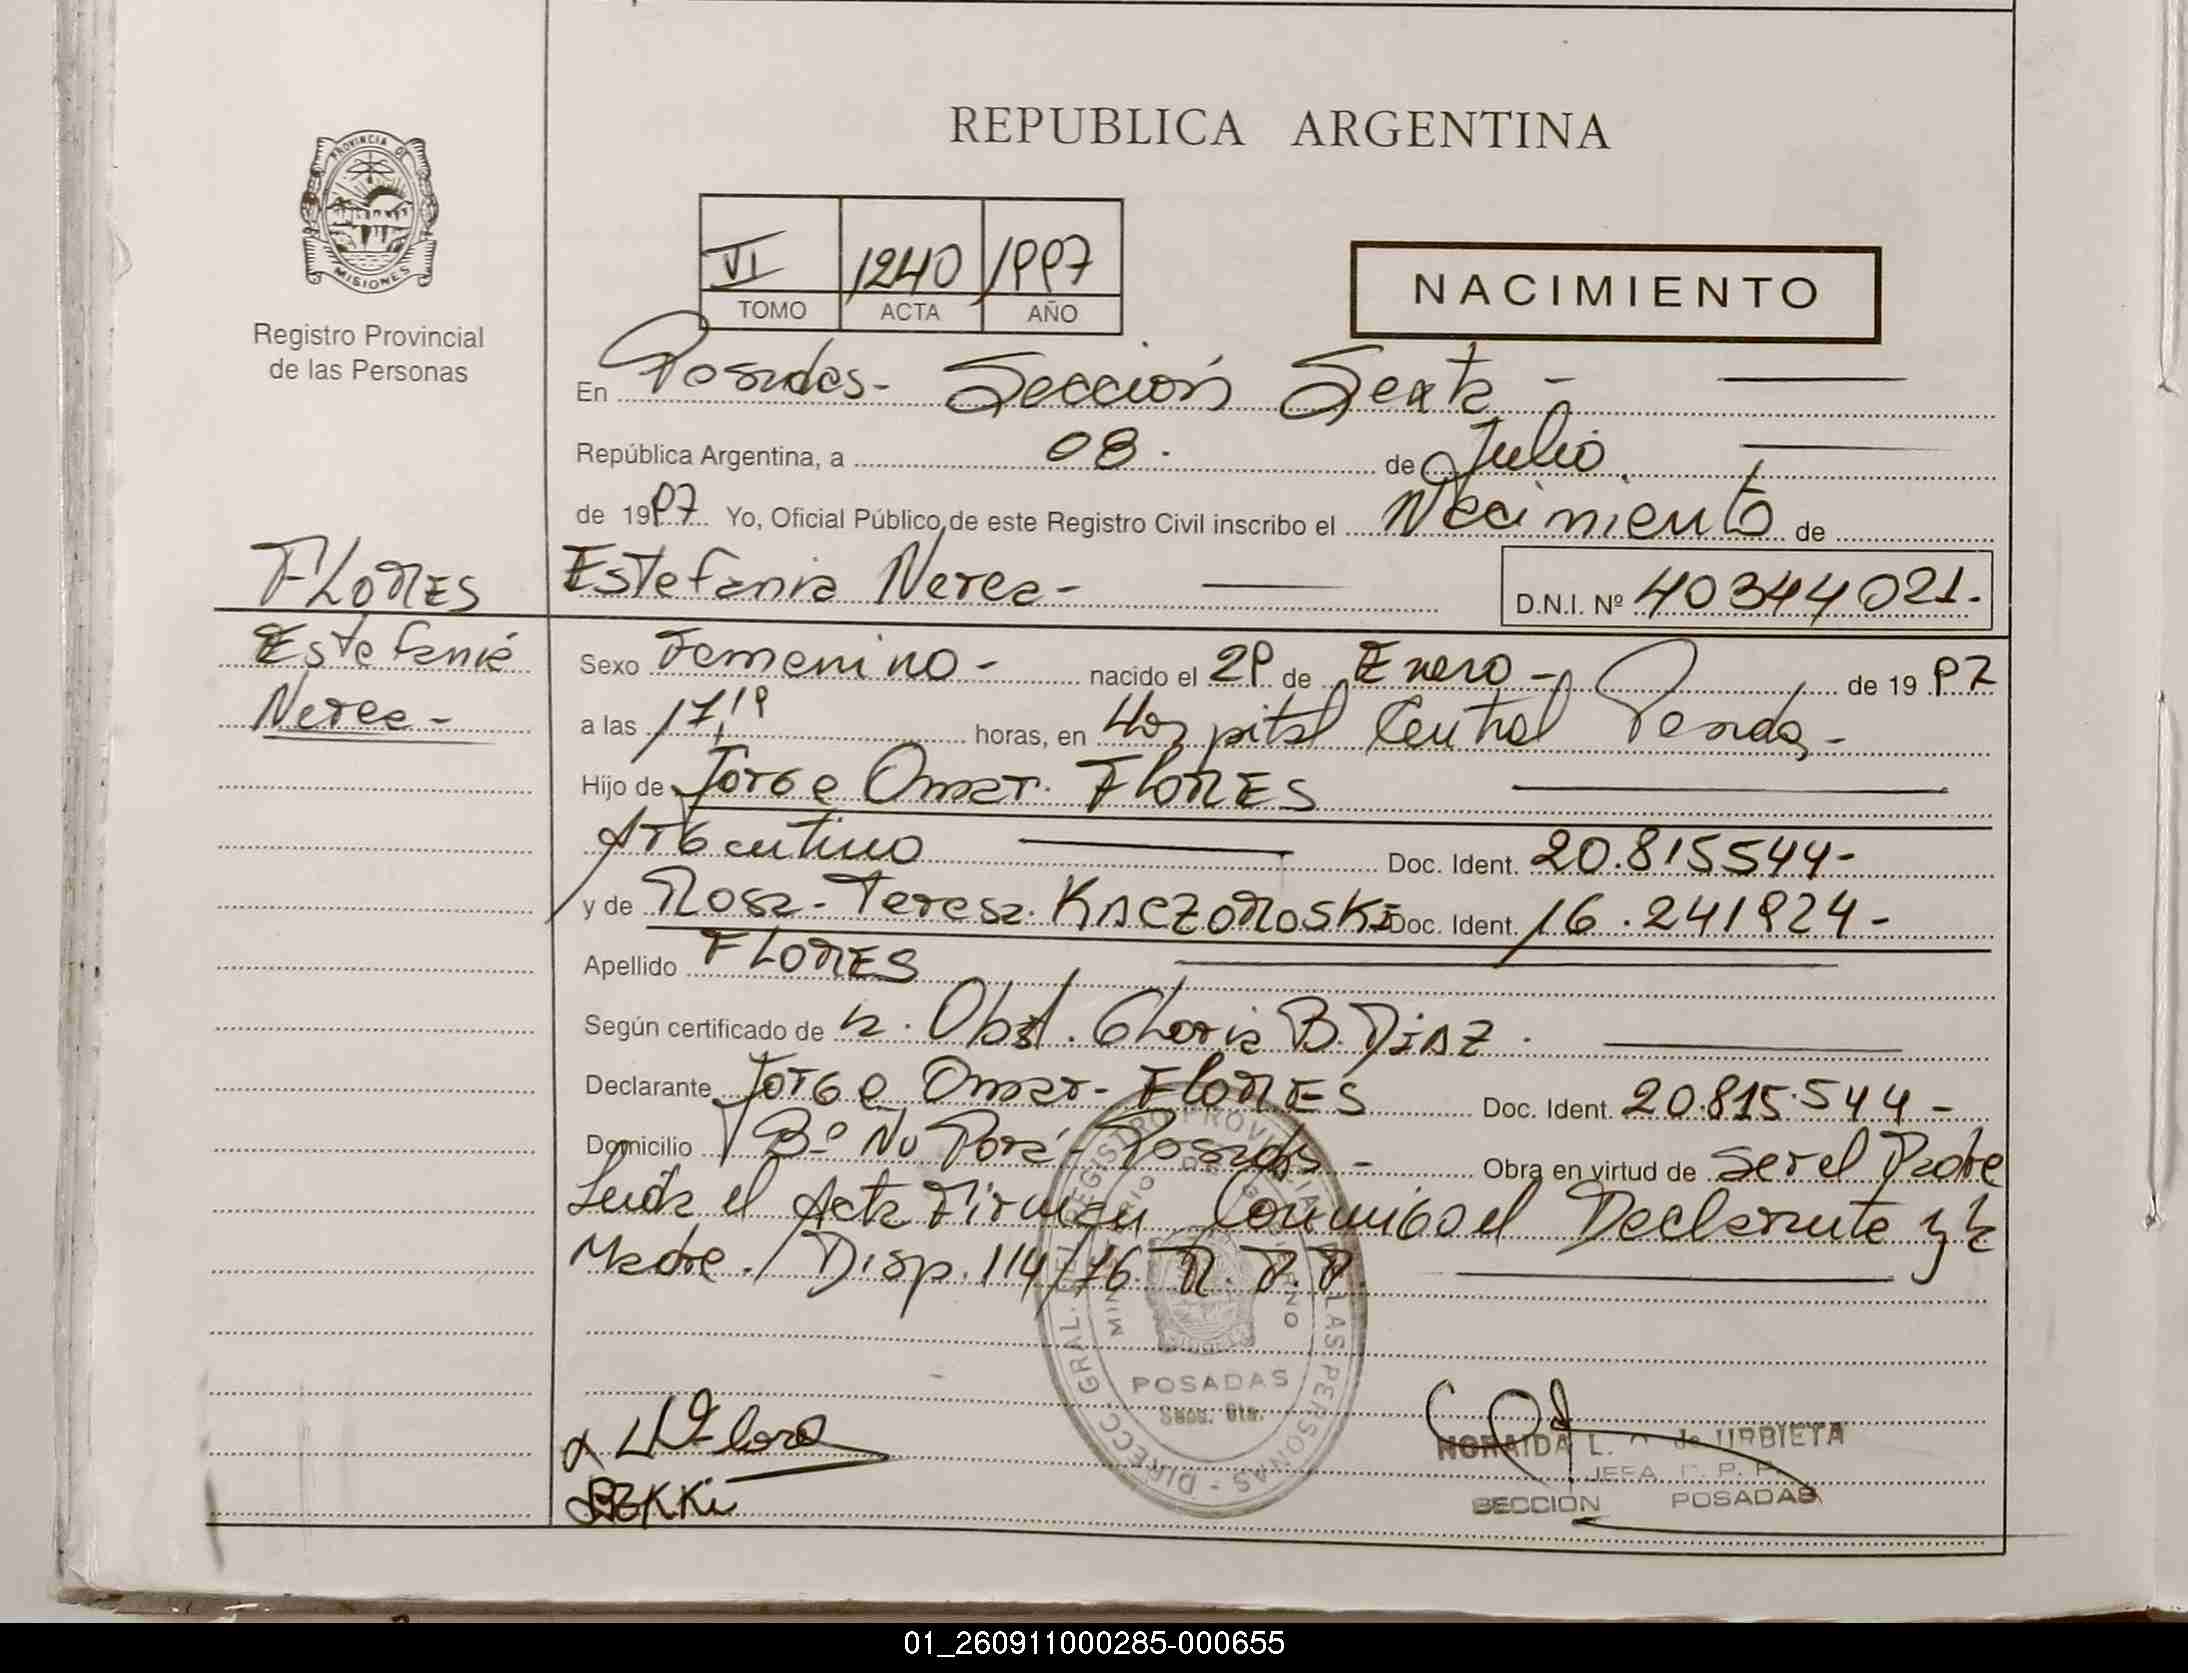 REPUBLICA ARGENTINA
PROVINCIA DE
MISIONES
Registro Provincial
de las Personas
VI 1240 1997
TOMO ACTA AÑO
NACIMIENTO
En Posadas - Sección Sexta -
República Argentina, a 08. de Julio
de 1997 Yo, Oficial Público de este Registro Civil inscribo el Nacimiento de
FLORES
Estefania Nerea -
D.N.I. Nº 40344021.
Estefania
Nerea -
Sexo Femenino - nacido el 29 de Enero - de 1997
a las 17,19 horas, en Hospital Central Posadas -
Hijo de Jorge Omar FLORES
Argentino Doc. Ident. 20.815544-
y de Rosa Teresa KACZOROSKI Doc. Ident. 16.241924-
Apellido FLORES
Según certificado de la Obst. Gloria B. DIAZ.
Declarante Jorge Omar FLORES Doc. Ident. 20.815.544-
Domicilio Bº Ñu Porá - Posadas - Obra en virtud de ser el Padre
Leída el Acta Firman Conmigo el Declarante y la
Madre. / Disp. 114/76 R.P.P.
DIRECC. GRAL. DEL REGISTRO PROVINCIAL DE LAS PERSONAS
MINISTERIO DE GOBIERNO
POSADAS
Secc. 6ta.
NORAIDA L. de URBIETA
JEFA R. P. P.
SECCION POSADAS
01_260911000285-000655